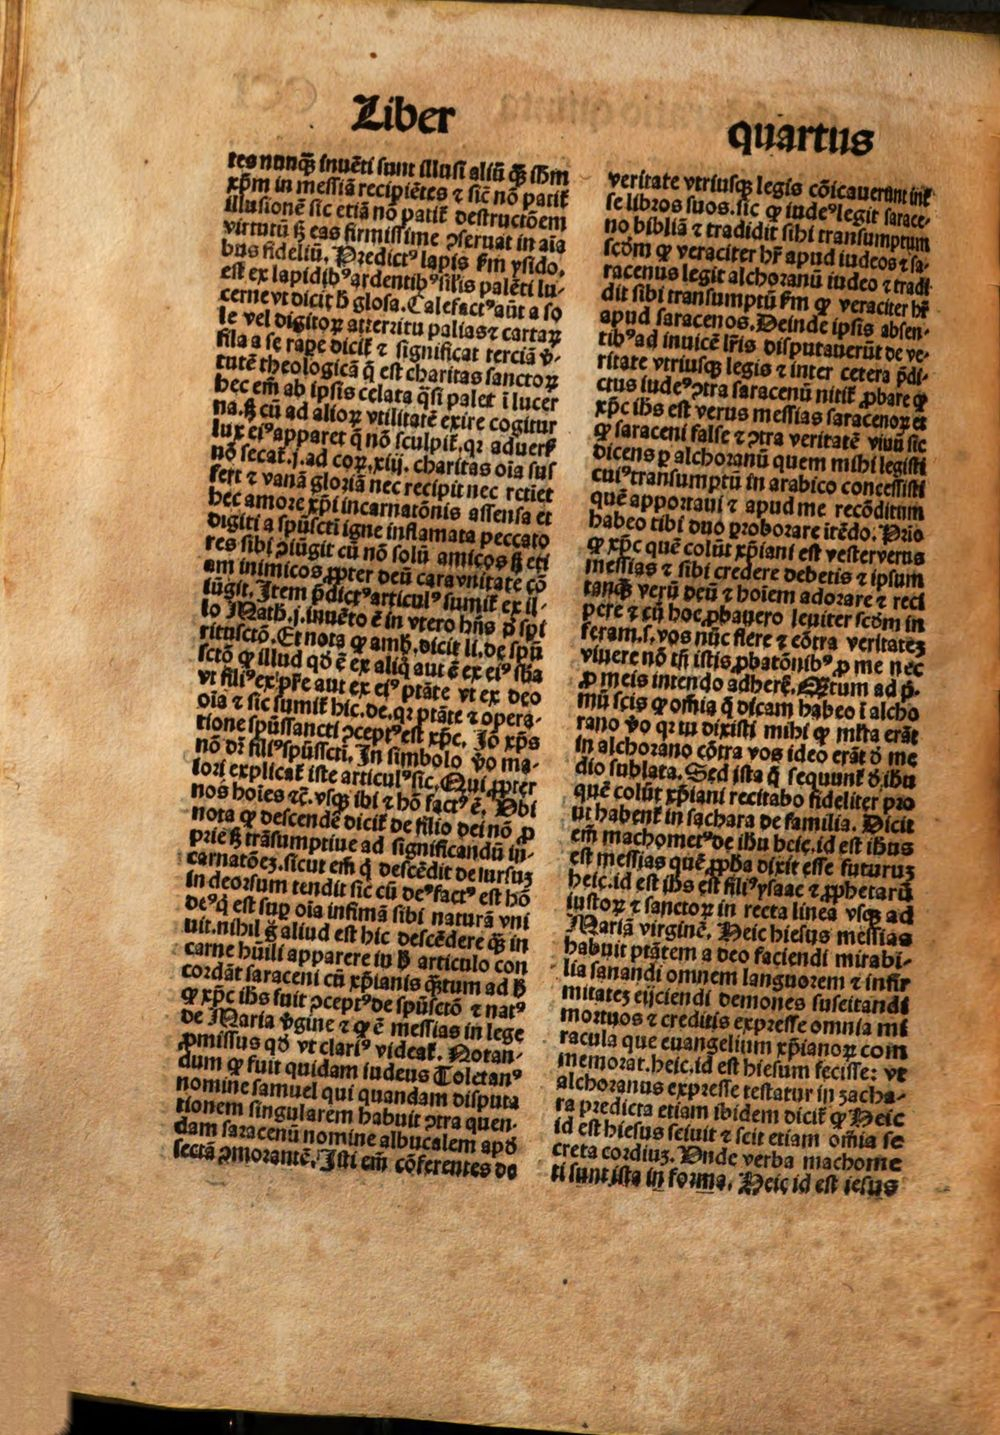 Liber
quartus
tes nunq̄ȝ inuēti sunt illusi aliū q̄ȝ ihm
xp̄m in messiā recipiētes ⁊ sic nō patit̉
illusionē sic etiā nō patit̉ destructōem
virtutū ſȝ eas firmissime ꝯseruat in aīa
bus fideliū. Predictꝰ lapis ẜm ysido.
est ex lapidibꝰ ardentibꝰ silis palēti lu-
cerne vt dicit ħ glosa. Calefactꝰ aūt a so
le vel digitoꝝ attritu palias ⁊ cartaꝝ
fila a se rape dicit̉ ⁊ significat terciā v̄-
tutē theologicā q̄ est charitas sanctoꝝ
hec em̄ ab ipsis celata q̄si palet ī lucer
na. ſȝ cū ad alioꝝ vtilitatē exire cogitur
lux eiꝰ apparet q̄ nō sculpit̉. qꝛ aduerſ
nō secat̉. j. ad coꝝ. xiij. charitas oīa suf
fert ⁊ vanā gloriā nec recipit nec retiet
hec amore xp̄i incarnatōnis assensa et
digiti a spūsctī igne inflamata peccato
res sibi ꝯiūgit cū nō solū amicos ſȝ eti
am inimicos ꝓpter deū cara vnitate cō
iūgit. Item p̄dictꝰ articulꝰ sumit̉ ex il-
lo Math. j. inuēto ē in vtero hn̄s ď spi
ritusctō. Et nota ꝙ amb. dicit li. de spū
sctō ꝙ illud qď ē ex aliq̄ aut ē ex eiꝰ sba
vt filiꝰ ex p̄re aut ex eiꝰ ptāte vt ex deo
oīa ⁊ sic sumit̉ hic. de. qꝛ ptāte ⁊ opera-
tione spūssancti ꝯceptꝰ est xp̄c. Iō xp̄s
nō dr̄ filiꝰ spūssctī. In simbolo v̄o ma-
iori explicat̉ iste articulꝰ sic. Qui ꝓpter
nos hoīes ⁊c̄. vsqȝ ibi ⁊ hō factꝰ ē. Vbi
nota ꝙ descende dicit̉ de filio dei nō ꝓ
prie ſȝ trāsumptiue ad significandū in-
carnatōeȝ. sicut em̄ q̄ descēdit de sursuȝ
in deorsum tendit sic cū deꝰ factꝰ est hō
deꝰ q̄ est suꝑ oīa infimā sibi naturā vni
uit. nihil g̃ aliud est hic descēdere q̄ȝ in
carne hūili apparere in ħ articulo con
cordāt saraceni cū xp̄ianis q̄ȝtum ad ħ
ꝙ xp̄c ihs fuit ꝯceptꝰ de spūsctō ⁊ natꝰ
de Maria v̄gine ⁊ ꝙ ē messias in lege
ꝓmissus qď vt clariꝰ videat̉. Notan-
dum ꝙ fuit quidam iudeus Toletanꝰ
nomine samuel qui quandam disputa
tionem singularem habuit ꝯtra quen-
dam saracenū nomine albucalem apď
sectā ꝯmorantē. Isti em̄ cōferentes de
veritate vtriusqȝ legis cōicauerunt int̉
se libros suos. sic ꝙ iudeꝰ legit sarace-
no bibliā ⁊ tradidit sibi transumptum
scōm ꝙ veraciter hr̄ apud iudeos ⁊ sa-
racenus legit alchoranū iudeo ⁊ tradi
dit sibi transumptū ẜm ꝙ veraciter hr̄
apud saracenos. Deinde ipsis absen-
tibꝰ ad inuicē lr̄is disputauerūt de ve-
ritate vtriusqȝ legis ⁊ inter cetera p̄di-
ctus iudeꝰ ꝯtra saracenū nitit̉ ꝓbare ꝙ
xp̄c ihs est verus messias saracenoꝝ et
ꝙ saraceni false ⁊ ꝯtra veritatē viuū sic
dicens ꝑ alchoranū quem mihi legisti
cuiꝰ transumptū in arabico concessisti
quē apportaui ⁊ apud me recōditum
habeo tibi duo ꝓborare itēdo. Prio
ꝙ xp̄c quē colūt xp̄iani est vester verus
messias ⁊ sibi credere debetis ⁊ ipsum
tanqȝ verū deū ⁊ hoīem adorare ⁊ reci
pere ⁊ cū hoc ꝓbauero leuiter scōm in
feram. s. vos nūc flere ⁊ cōtra veritateȝ
viuere nō tn̄ istis ꝓbatōnibꝰ ꝑ me nec
ꝑ meis intendo adherẽ. Qȝtum ad p̄-
mū scis ꝙ om̄ia q̄ dicam habeo ī alcho
rano v̄o qꝛ tu dixisti mihi ꝙ mlta erāt
in alchorano cōtra vos ideo erāt ď me
dio sublata. Sed ista q̄ sequunt̉ ď ihu
quē colūt xp̄iani recitabo fideliter pro
ut habent̉ in sachara de familia. Dicit
em̄ machometꝰ de ihu heic. id est ihus
est messias quē ꝓpha dixit esse futurus
heic. id est ihs est filiꝰ ysaac ⁊ ꝓphetarū
iustoꝝ ⁊ sanctoꝝ in recta linea vsqȝ ad
Mariā virginē. Heic hiesus messias
habuit ptātem a deo faciendi mirabi-
lia sanandi omnem languorem ⁊ infir
mitateȝ eijciendi demones suscitandi
mortuos ⁊ creditis expresse omnia mi
racula que euangelium xp̄ianoꝝ com
memorat. heic. id est hiesum fecisse: vt
alchoranus expresse testatur in zacha-
ra predicta etiam ibidem dicit̉ ꝙ Heic
id est hiesus sciuit ⁊ scit etiam om̄ia se
creta cordiuȝ. Vnde verba machome
ti sunt ista in forma. Heic id est iesus